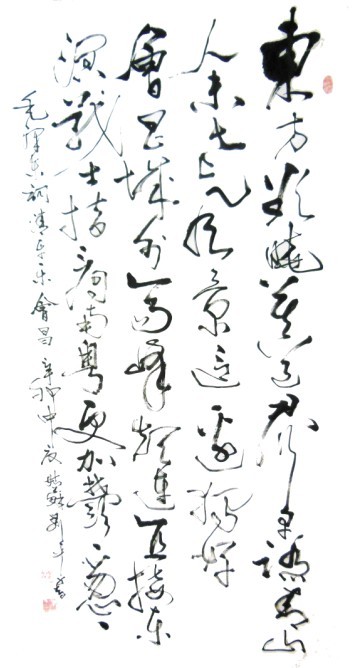 東方欲曉莫道君行早踏青山
人未老風景這邊獨好
會昌城外高峰顛連直接東
溟戰士指看南粵更加鬱〻葱〻
毛澤東詞清平樂會昌 辛卯中夏 書